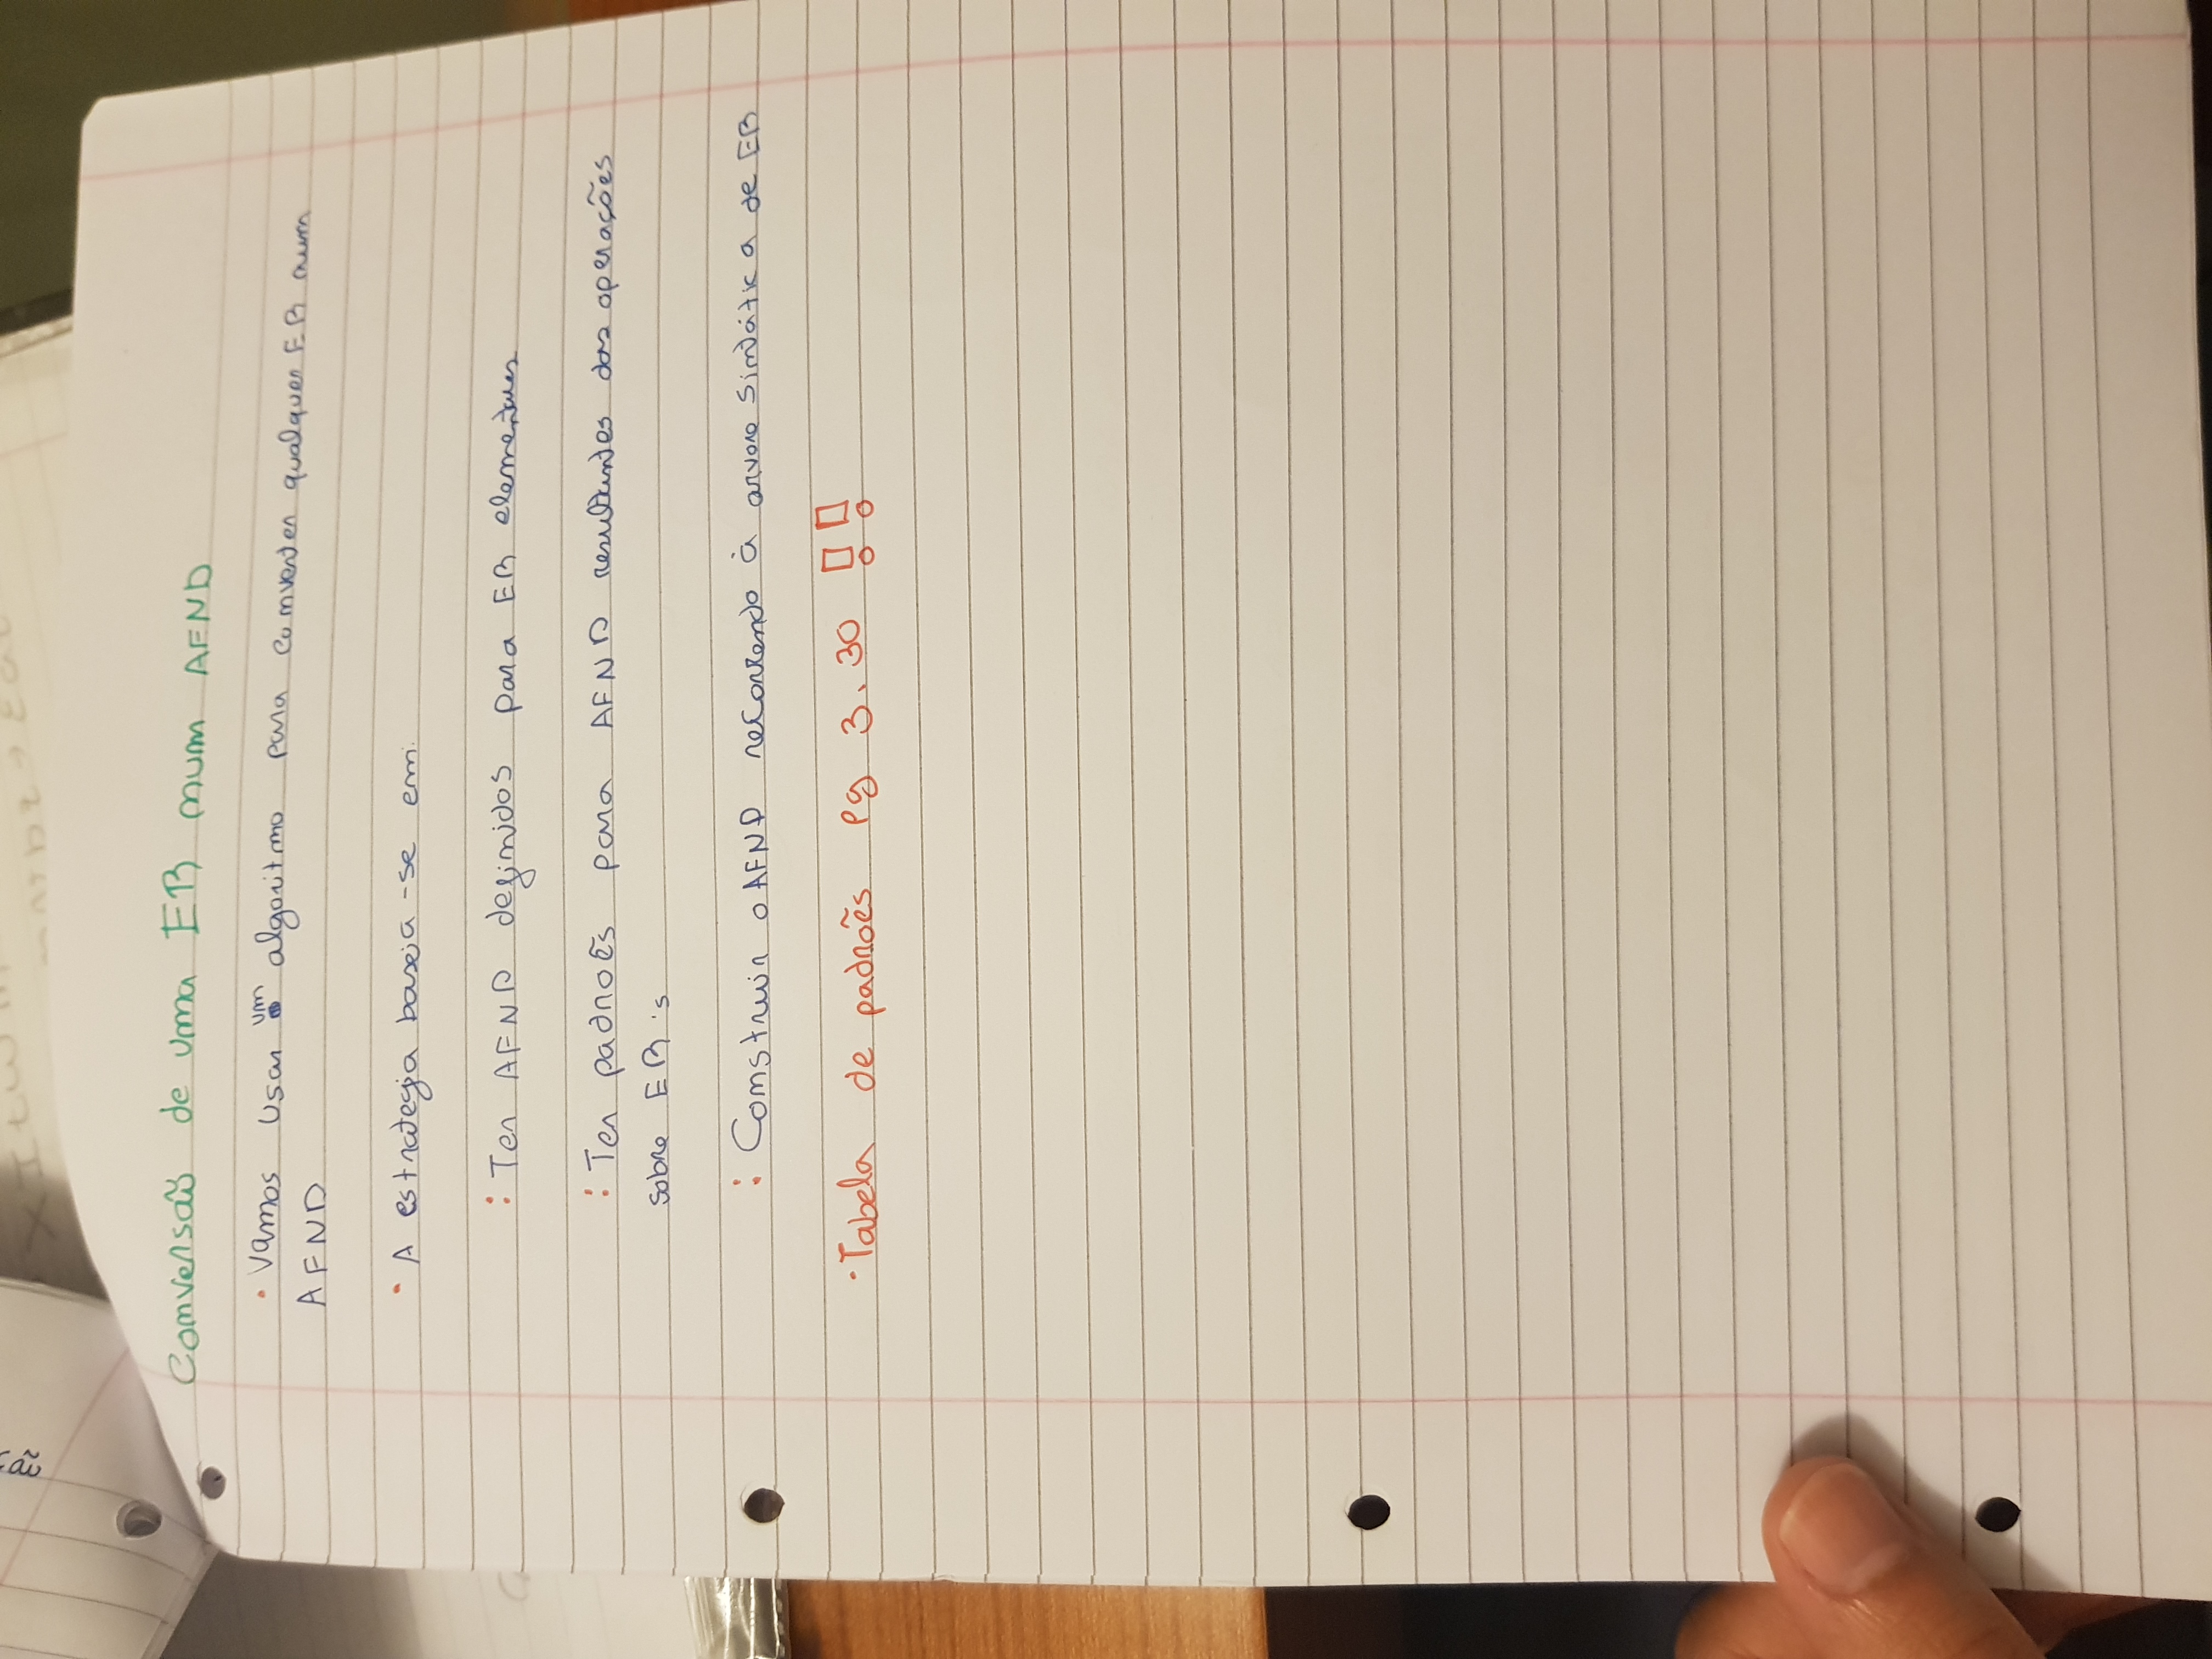 Conversão de uma ER num AFND
· Vamos usar um algoritmo para converter qualquer ER num
AFND
· A estrategia baseia-se em:
: Ter AFND definidos para ER elementares
: Ter padroẽs para AFND resultantes das operações
sobre ER's
: Construir o AFND recorrendo à arvore sintática de ER
· Tabela de padroẽs pg 3.30 !!